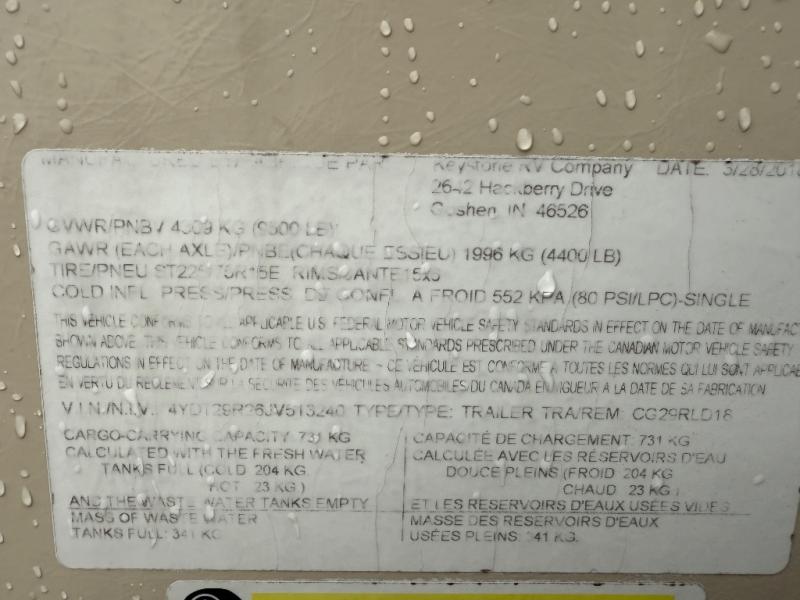 MANUFACTURED BY/FABRIQUE PAR Keystone RV Company DATE: 3/28/201
2642 Hackberry Drive
Goshen, IN 46526
GVWR/PNBV 4309 KG (9500 LB)
GAWR (EACH AXLE)/PNBE(CHAQUE ESSIEU) 1996 KG (4400 LB)
TIRE/PNEU ST225/75R15E RIMS/JANTE 15x6
COLD INFL. PRESS/PRESS. DE GONFL. A FROID 552 KPA (80 PSI/LPC)-SINGLE
THIS VEHICLE CONFORMS TO ALL APPLICABLE U.S. FEDERAL MOTOR VEHICLE SAFETY STANDARDS IN EFFECT ON THE DATE OF MANUFACT
SHOWN ABOVE. THIS VEHICLE CONFORMS TO ALL APPLICABLE STANDARDS PRESCRIBED UNDER THE CANADIAN MOTOR VEHICLE SAFETY
REGULATIONS IN EFFECT ON THE DATE OF MANUFACTURE - CE VEHICULE EST CONFORME A TOUTES LES NORMES QUI LUI SONT APPLICABLE
EN VERTU DU REGLEMENT SUR LA SECURITE DES VEHICULES AUTOMOBILES DU CANADA EN VIGUEUR A LA DATE DE SA FABRICATION
V.I.N./N.I.V.: 4YDT29R26JV513240 TYPE/TYPE: TRAILER TRA/REM CG29RLD18
CARGO-CARRYING CAPACITY 731 KG
CALCULATED WITH THE FRESH WATER
TANKS FULL (COLD 204 KG.
HOT 23 KG.)
AND THE WASTE WATER TANKS EMPTY
MASS OF WASTE WATER
TANKS FULL: 341 KG
CAPACITÉ DE CHARGEMENT: 731 KG
CALCULÉE AVEC LES RÉSERVOIRS D'EAU
DOUCE PLEINS (FROID 204 KG
CHAUD 23 KG.)
ET LES RÉSERVOIRS D'EAUX USÉES VIDES
MASSE DES RÉSERVOIRS D'EAUX
USÉES PLEINS: 341 KG.